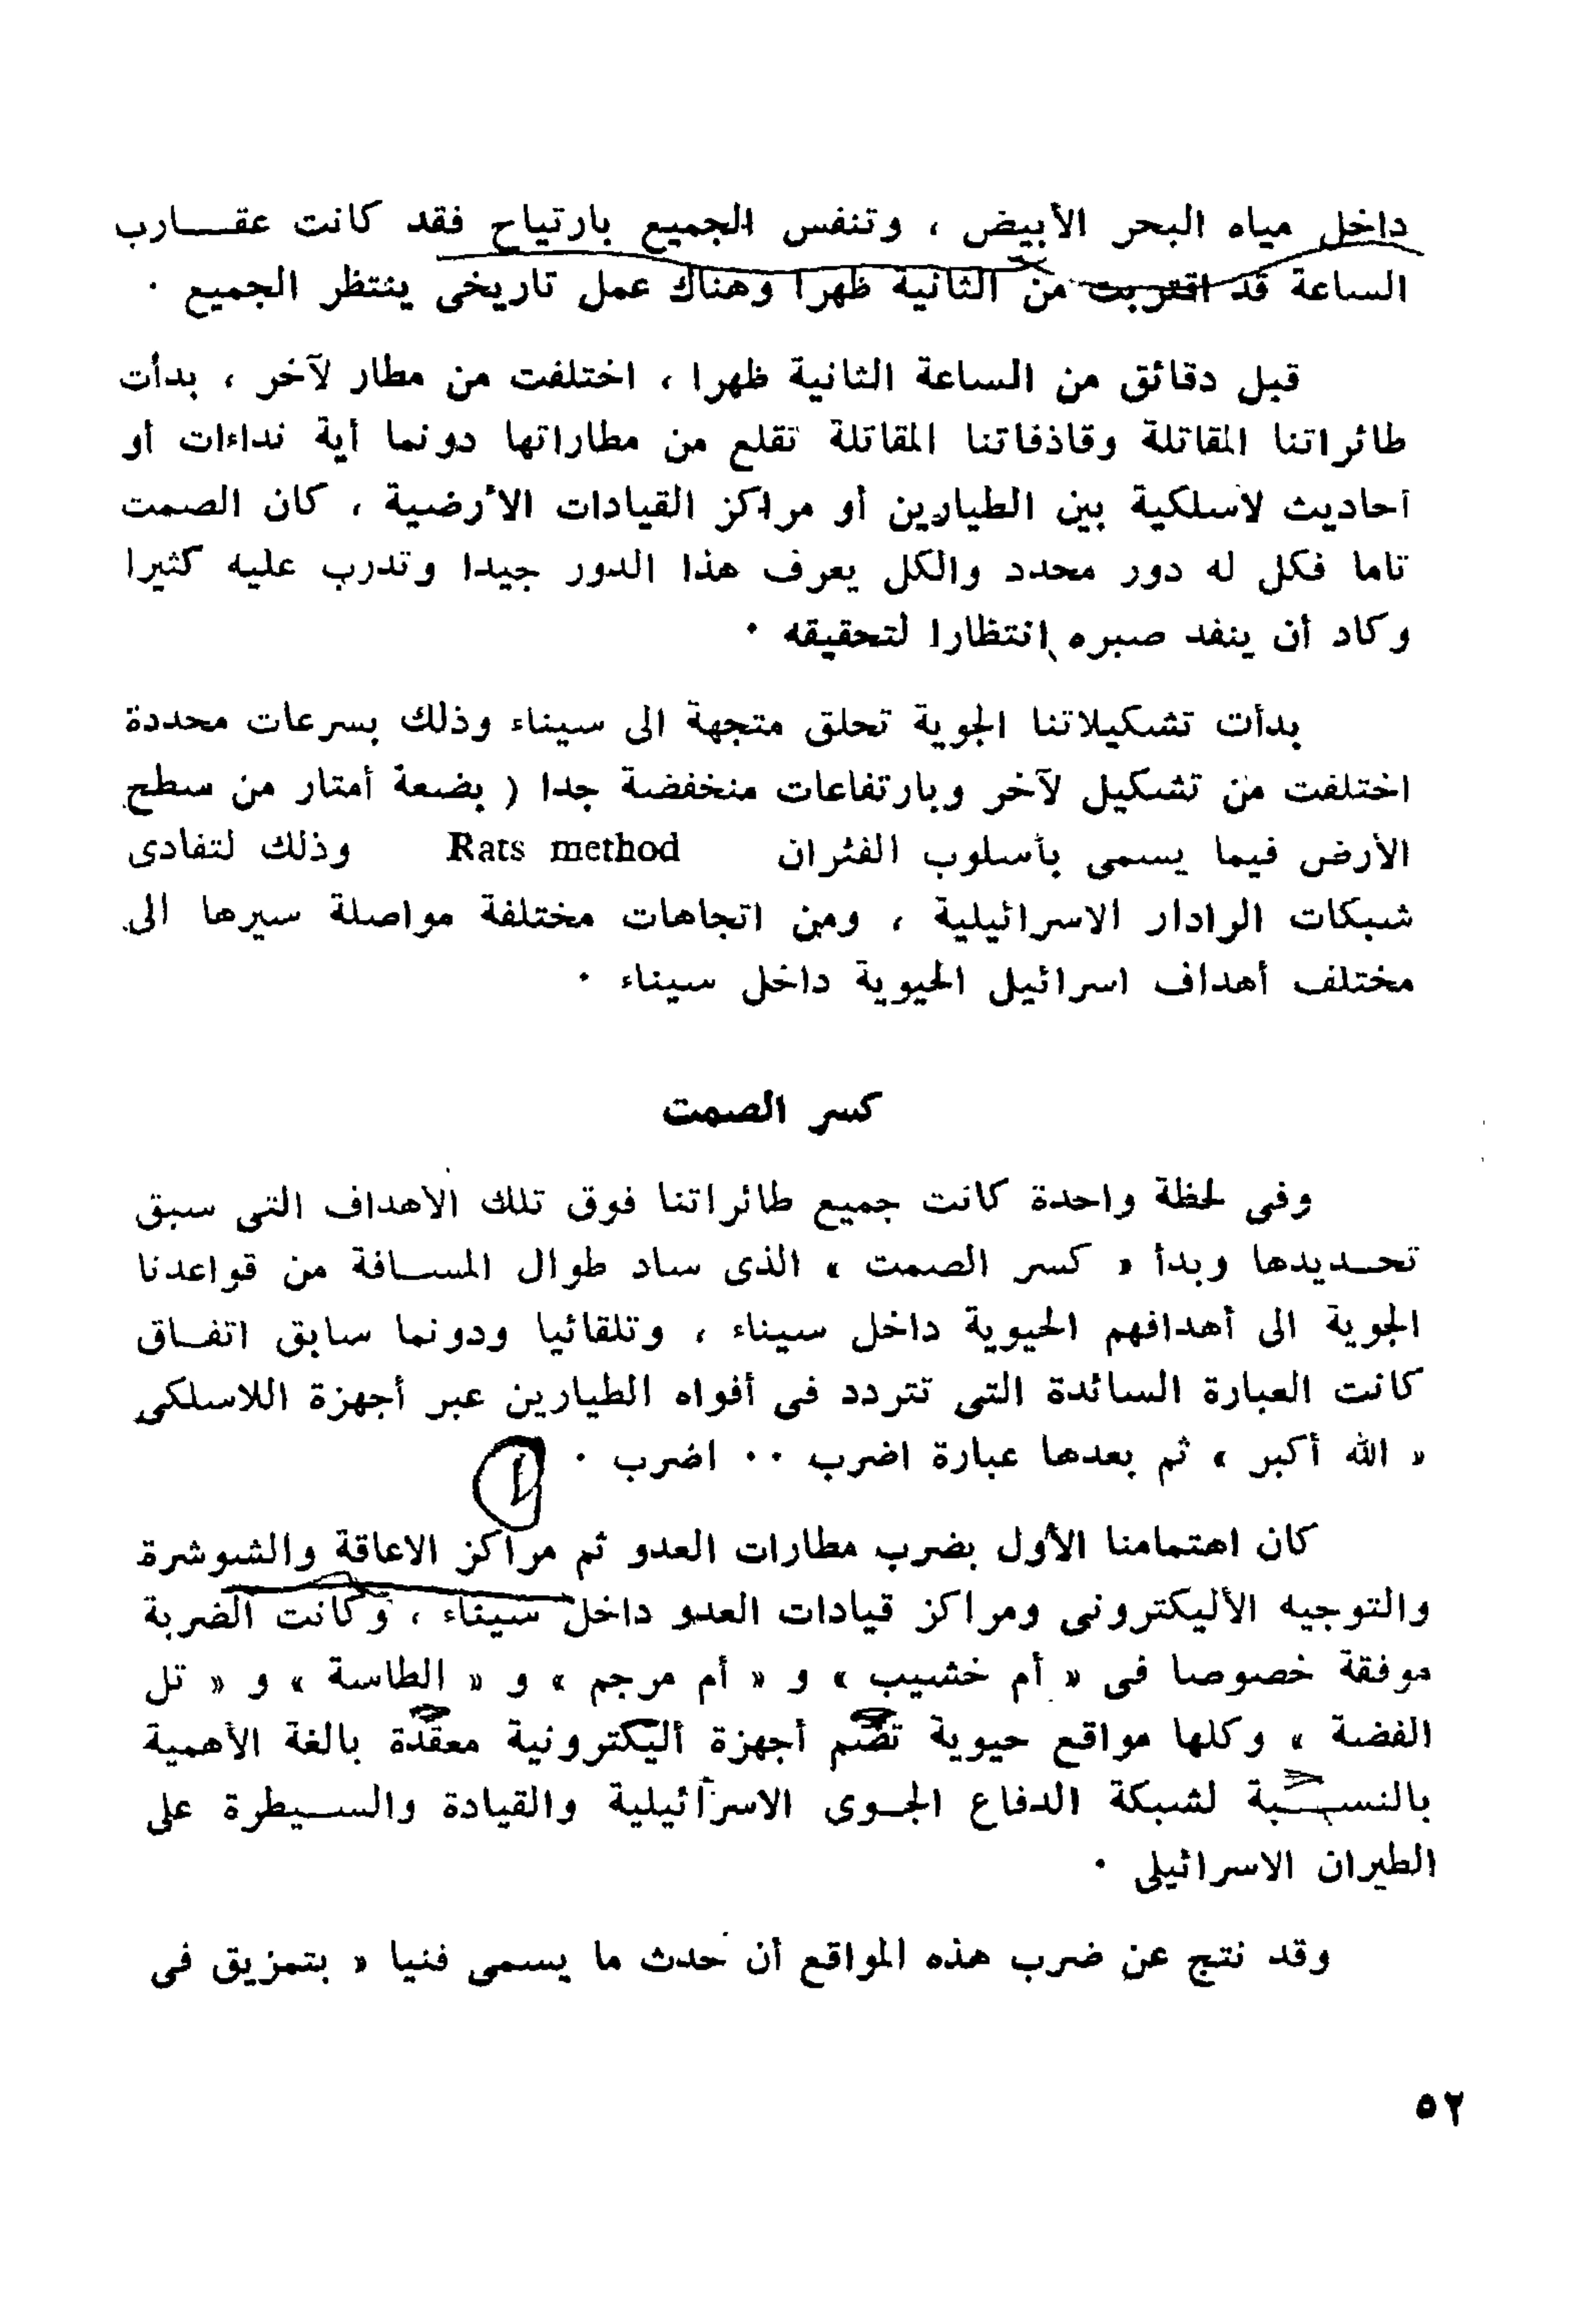 داخل مياه البحر الأبيض ، وتنفس الجميع بارتياح فقد كانت عقــارب
الساعة قد اقتربت من الثانية ظهرا وهناك عمل تاريخى ينتظر الجميع ٠
قبل دقائق من الساعة الثانية ظهرا ، اختلفت من مطار لآخر ، بدأت
طائراتنا المقاتلة وقاذفاتنا المقاتلة تقلع من مطاراتها دونما أية نداءات أو
أحاديث لاسلكية بين الطيارين أو مراكز القيادات الأرضية ، كان الصمت
تاما فكل له دور محدد والكل يعرف هذا الدور جيدا وتدرب عليه كثيرا
وكاد أن ينفد صبره انتظارا لتحقيقه ٠
بدأت تشكيلاتنا الجوية تحلق متجهة الى سيناء وذلك بسرعات محددة
اختلفت من تشكيل لآخر وبارتفاعات منخفضة جدا ( بضعة أمتار من سطح
الأرض فيما يسمى بأسلوب الفئران Rats method وذلك لتفادى
شبكات الرادار الاسرائيلية ، ومن اتجاهات مختلفة مواصلة سيرها الى
مختلف أهداف اسرائيل الحيوية داخل سيناء ٠
كسر الصمت
وفى لحظة واحدة كانت جميع طائراتنا فوق تلك الأهداف التى سبق
تحـديدها وبدأ « كسر الصمت » الذى ساد طوال المســافة من قواعدنا
الجوية الى أهدافهم الحيوية داخل سيناء ، وتلقائيا ودونما سابق اتفـاق
كانت العبارة السائدة التى تتردد فى أفواه الطيارين عبر أجهزة اللاسلكى
« الله أكبر » ثم بعدها عبارة اضرب ٠٠ اضرب ٠
كان اهتمامنا الأول بضرب مطارات العدو ثم مراكز الاعاقة والشوشرة
والتوجيه الأليكترونى ومراكز قيادات العدو داخل سيناء ، وكانت الضربة
موفقة خصوصا فى « أم خشيب » و « أم مرجم » و « الطاسة » و « تل
الفضة » وكلها مواقع حيوية تضم أجهزة أليكترونية معقدة بالغة الأهمية
بالنســبة لشبكة الدفاع الجـوى الاسرائيلية والقيادة والســيطرة على
الطيران الاسرائيلى ٠
وقد نتج عن ضرب هذه المواقع أن حدث ما يسمى فنيا « بتمزيق فى
٥٢